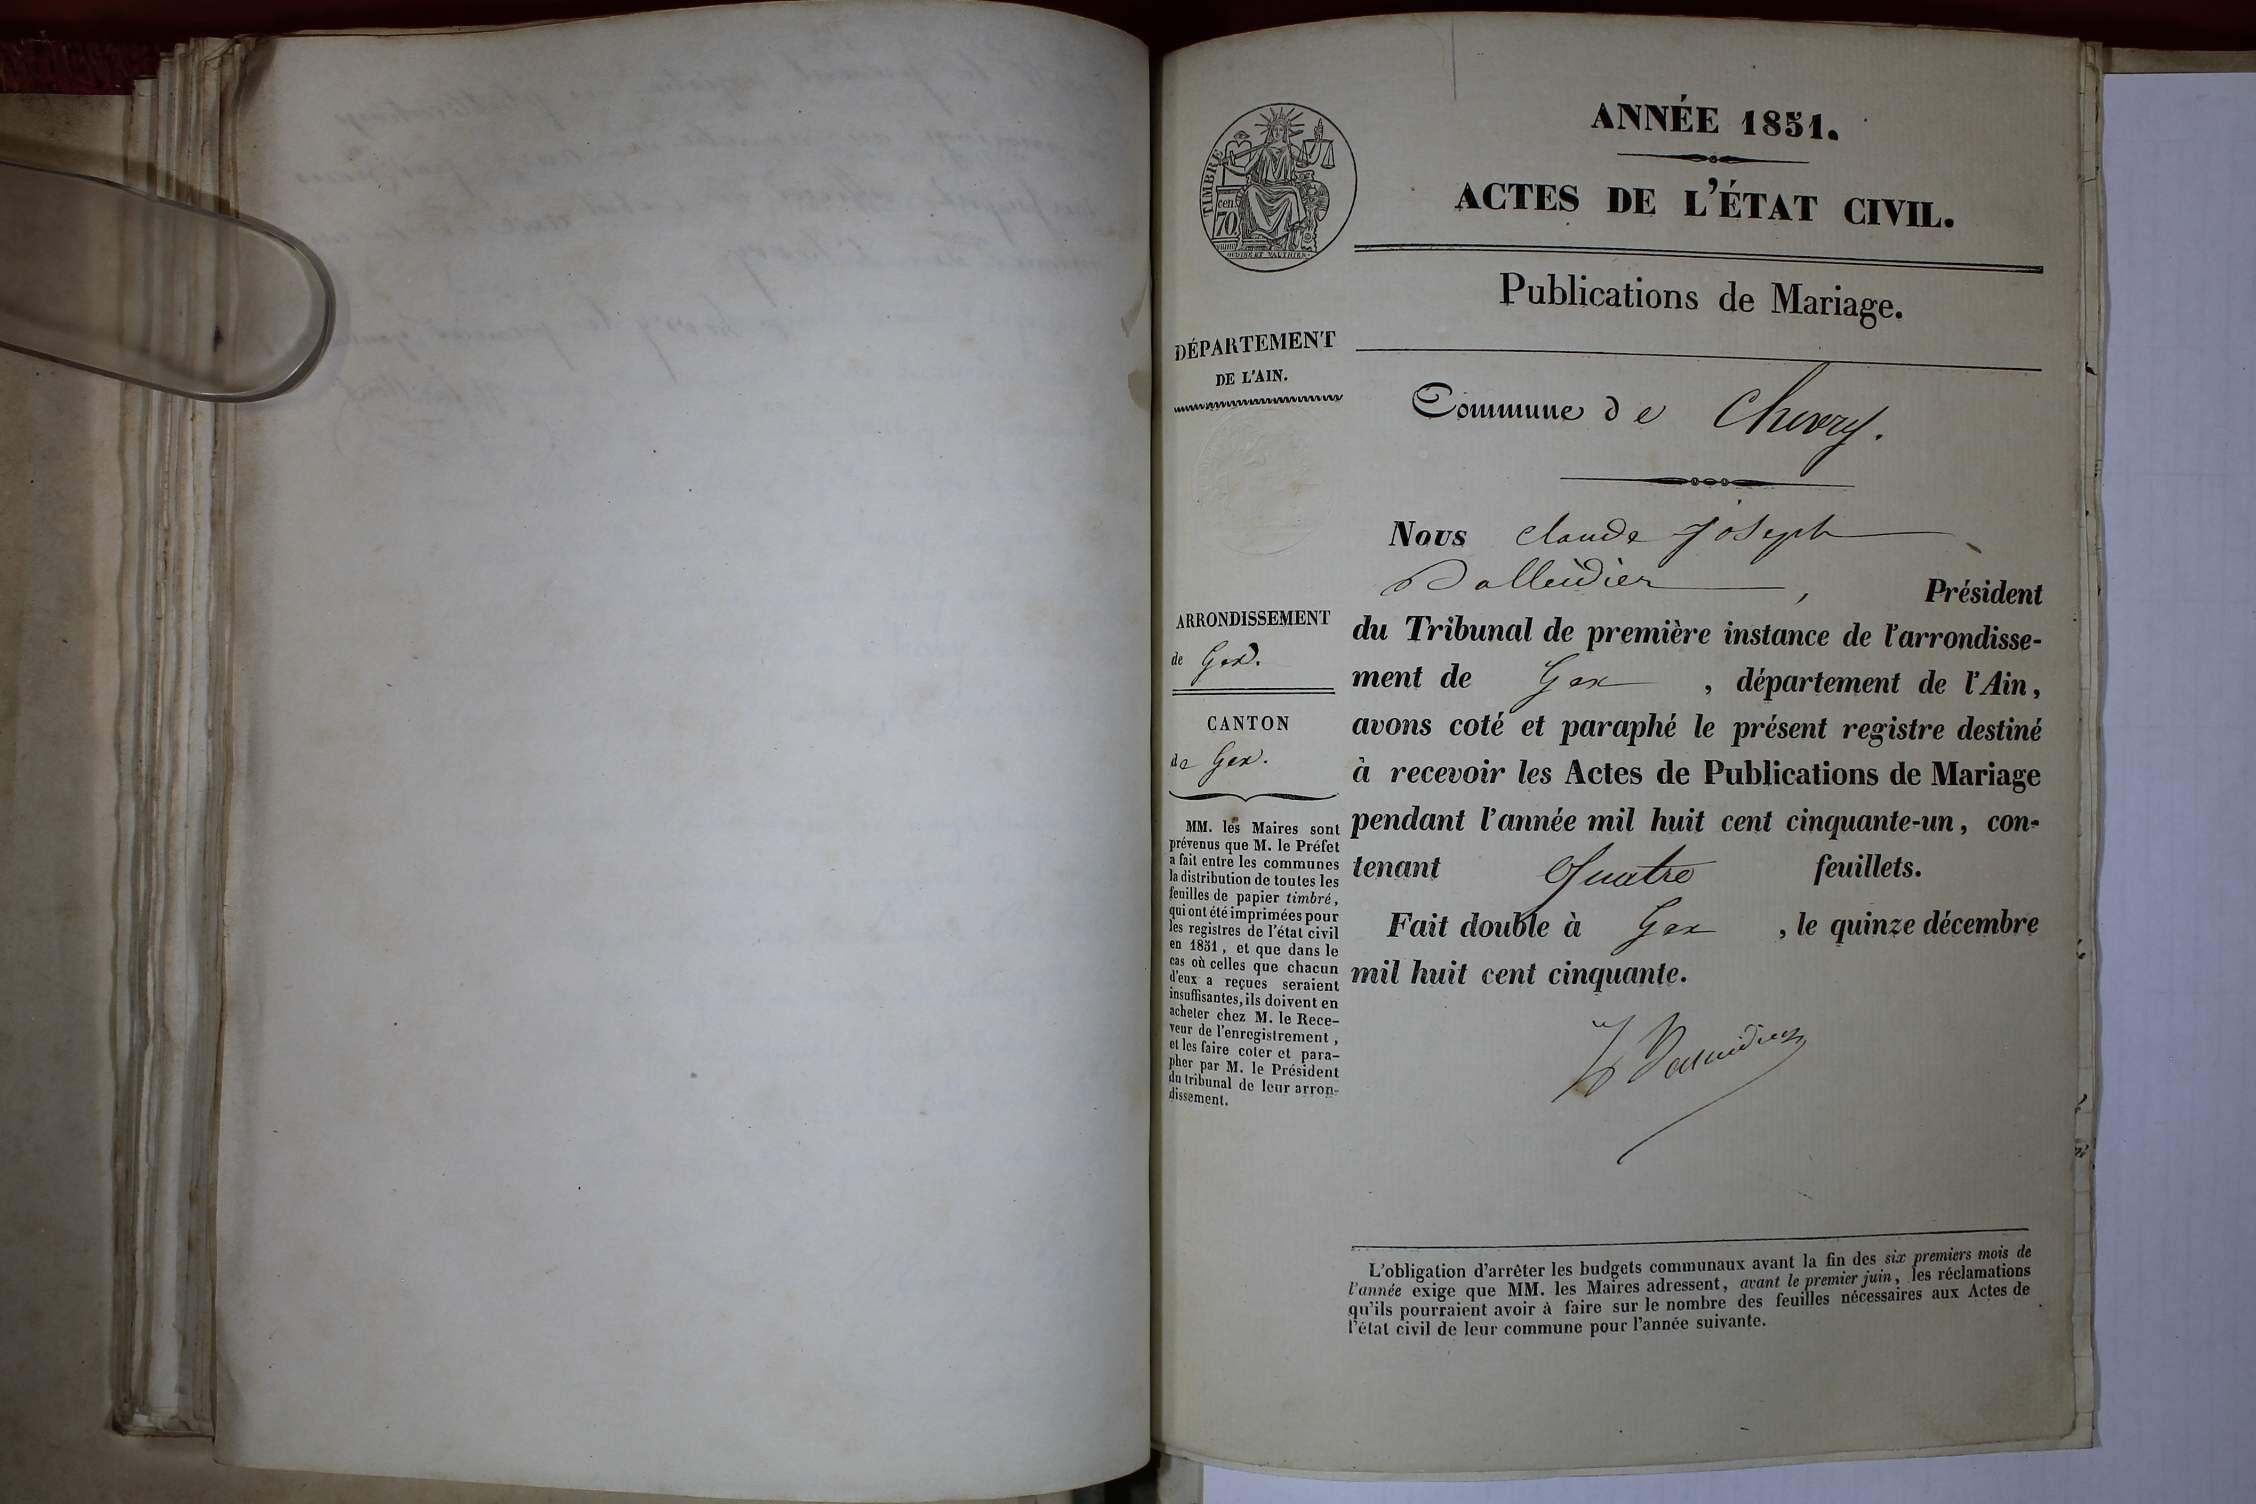 ANNÉE 1851.
ACTES DE L'ÉTAT CIVIL.
TIMBRE
cen.
70.
OUDINÉ ET VAUTHIER.
Publications de Mariage.
DÉPARTEMENT
DE L'AIN.
Commune de Chevry.
Nous Claude Joseph
, Président
du Tribunal de première instance de l'arrondisse-
ment de Gex , département de l'Ain,
avons coté et paraphé le présent registre destiné
à recevoir les Actes de Publications de Mariage
pendant l'année mil huit cent cinquante-un, con-
tenant Quatre feuillets.
Fait double à Gex , le quinze décembre
mil huit cent cinquante.
ARRONDISSEMENT
de Gex.
CANTON
de Gex.
MM. les Maires sont
prévenus que M. le Préfet
a fait entre les communes
la distribution de toutes les
feuilles de papier timbré,
qui ont été imprimées pour
les registres de l'état civil
en 1851, et que dans le
cas où celles que chacun
d'eux a reçues seraient
insuffisantes, ils doivent en
acheter chez M. le Rece-
veur de l'enregistrement,
et les faire coter et para-
pher par M. le Président
du tribunal de leur arron-
dissement.
L'obligation d'arrêter les budgets communaux avant la fin des six premiers mois de
l'année exige que MM. les Maires adressent, avant le premier juin, les réclamations
qu'ils pourraient avoir à faire sur le nombre des feuilles nécessaires aux Actes de
l'état civil de leur commune pour l'année suivante.